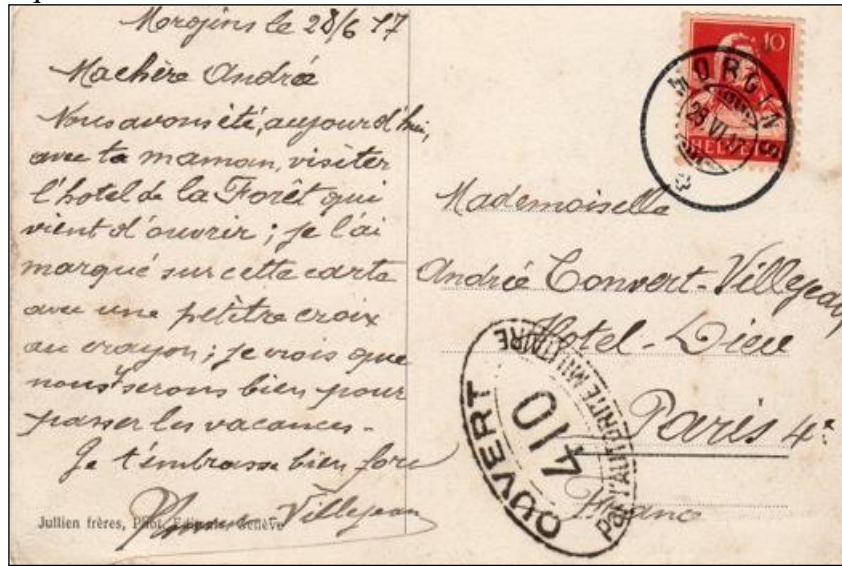 Morgins le 28/6 17
Ma chère André
Nous avons été, aujourd'hui,
avec ta maman, visiter
l'hotel de la Forêt qui
vient d'ouvrir ; je l'ai
marqué sur cette carte
avec une petitre croix
au crayon ; je crois que
nous y serons bien pour
passer les vacances -
Je t'embrasse bien fort
Villejean
Jullien frères, Phot. Editeurs, Genève
10
HELVETIA
MORGINS
28.VI.17
Mademoiselle
André Convert-Villejean
Hotel-Dieu
Paris 4e
France
OUVERT
410
PAR L'AUTORITÉ MILITAIRE